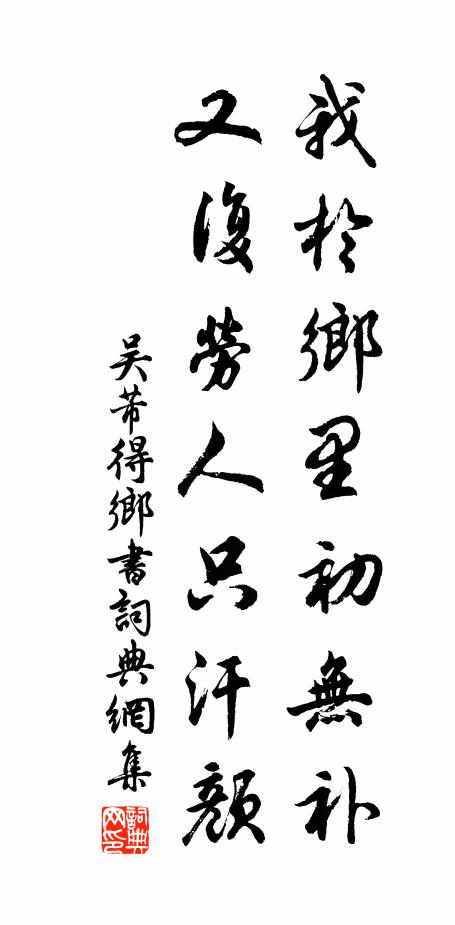 我於鄉里初無补
又復勞人只汗顏
吴芾得鄉書詞典網集
詞典网印